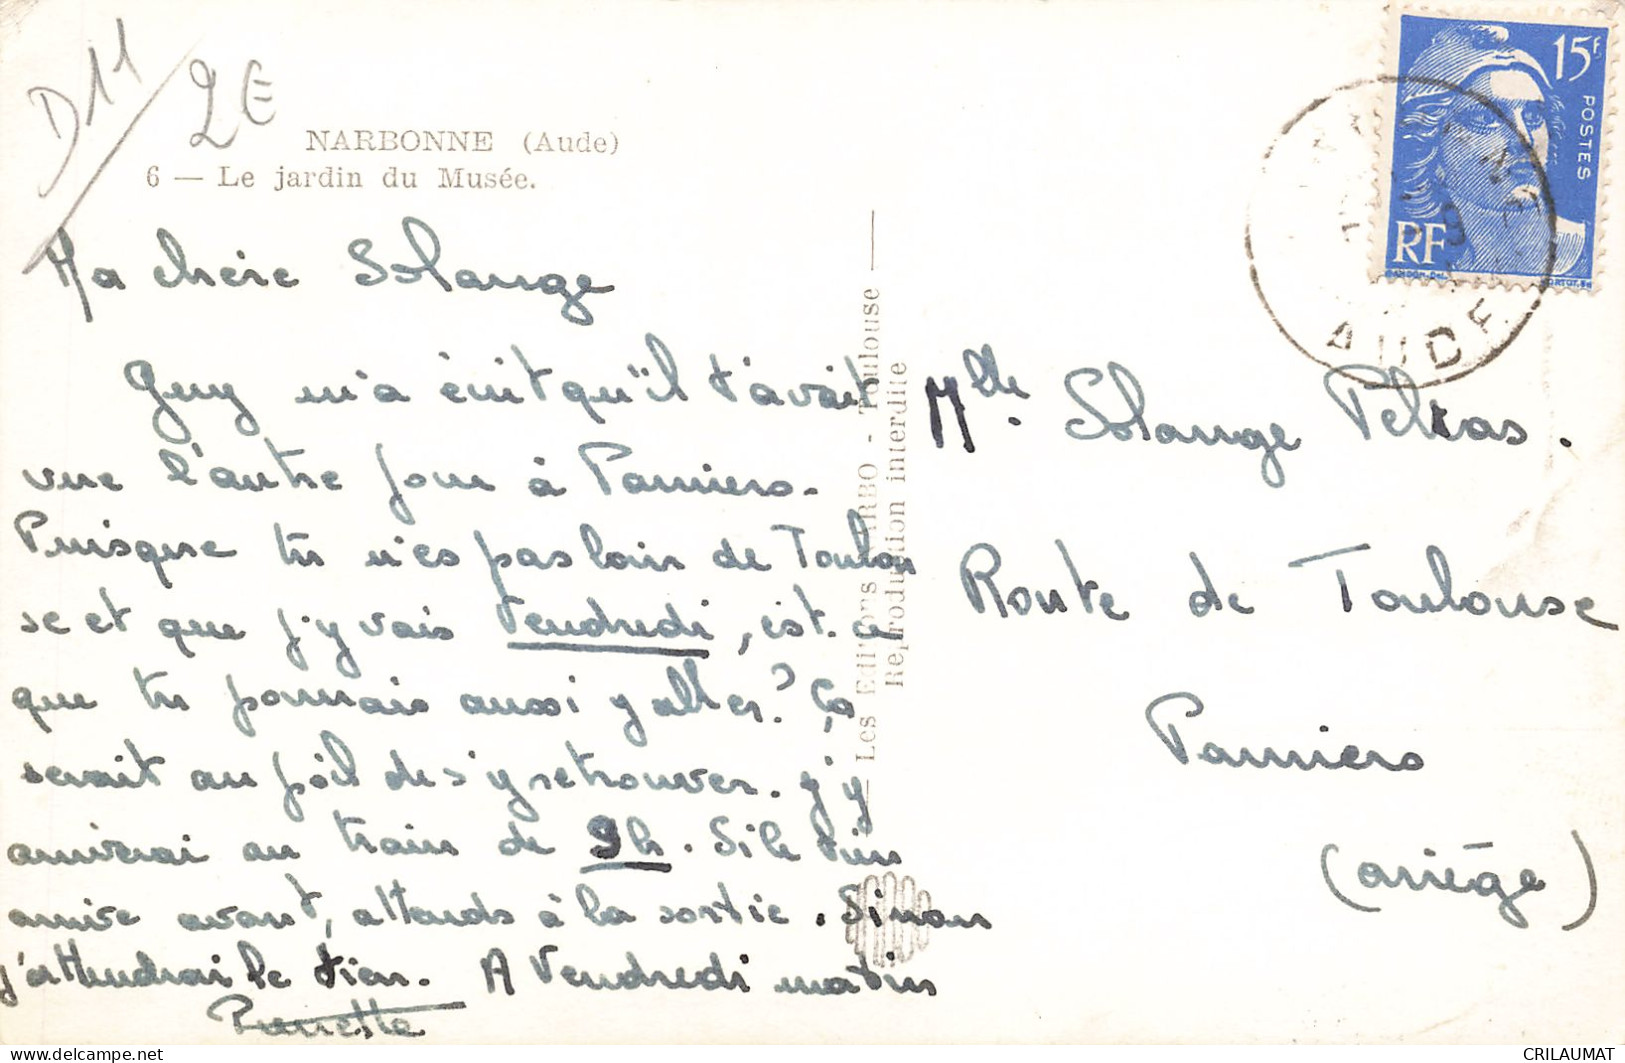 D11
2E
NARBONNE (Aude)
6 — Le jardin du Musée.
Ma chère Solange
Guy m'a écrit qu'il t'avait
vue l'autre jour à Pamiers.
Puisque tu n'es pas loin de Toulou
se et que j'y vais Vendredi, est-ce
que tu pourrais aussi y aller? Ça
serait au poil de s'y retrouver. J'y
arriverai au train de 9h. Si le tien
arrive avant, attends à la sortie. Sinon
j'attendrai le tien. A Vendredi matin
Pierrette
Les Editions NARBO - Toulouse
Reproduction interdite
15F
POSTES
RF
GANDON
AUDE
Mlle Solange
Route de Toulouse
Pamiers
(Ariège)
CRILAUMAT